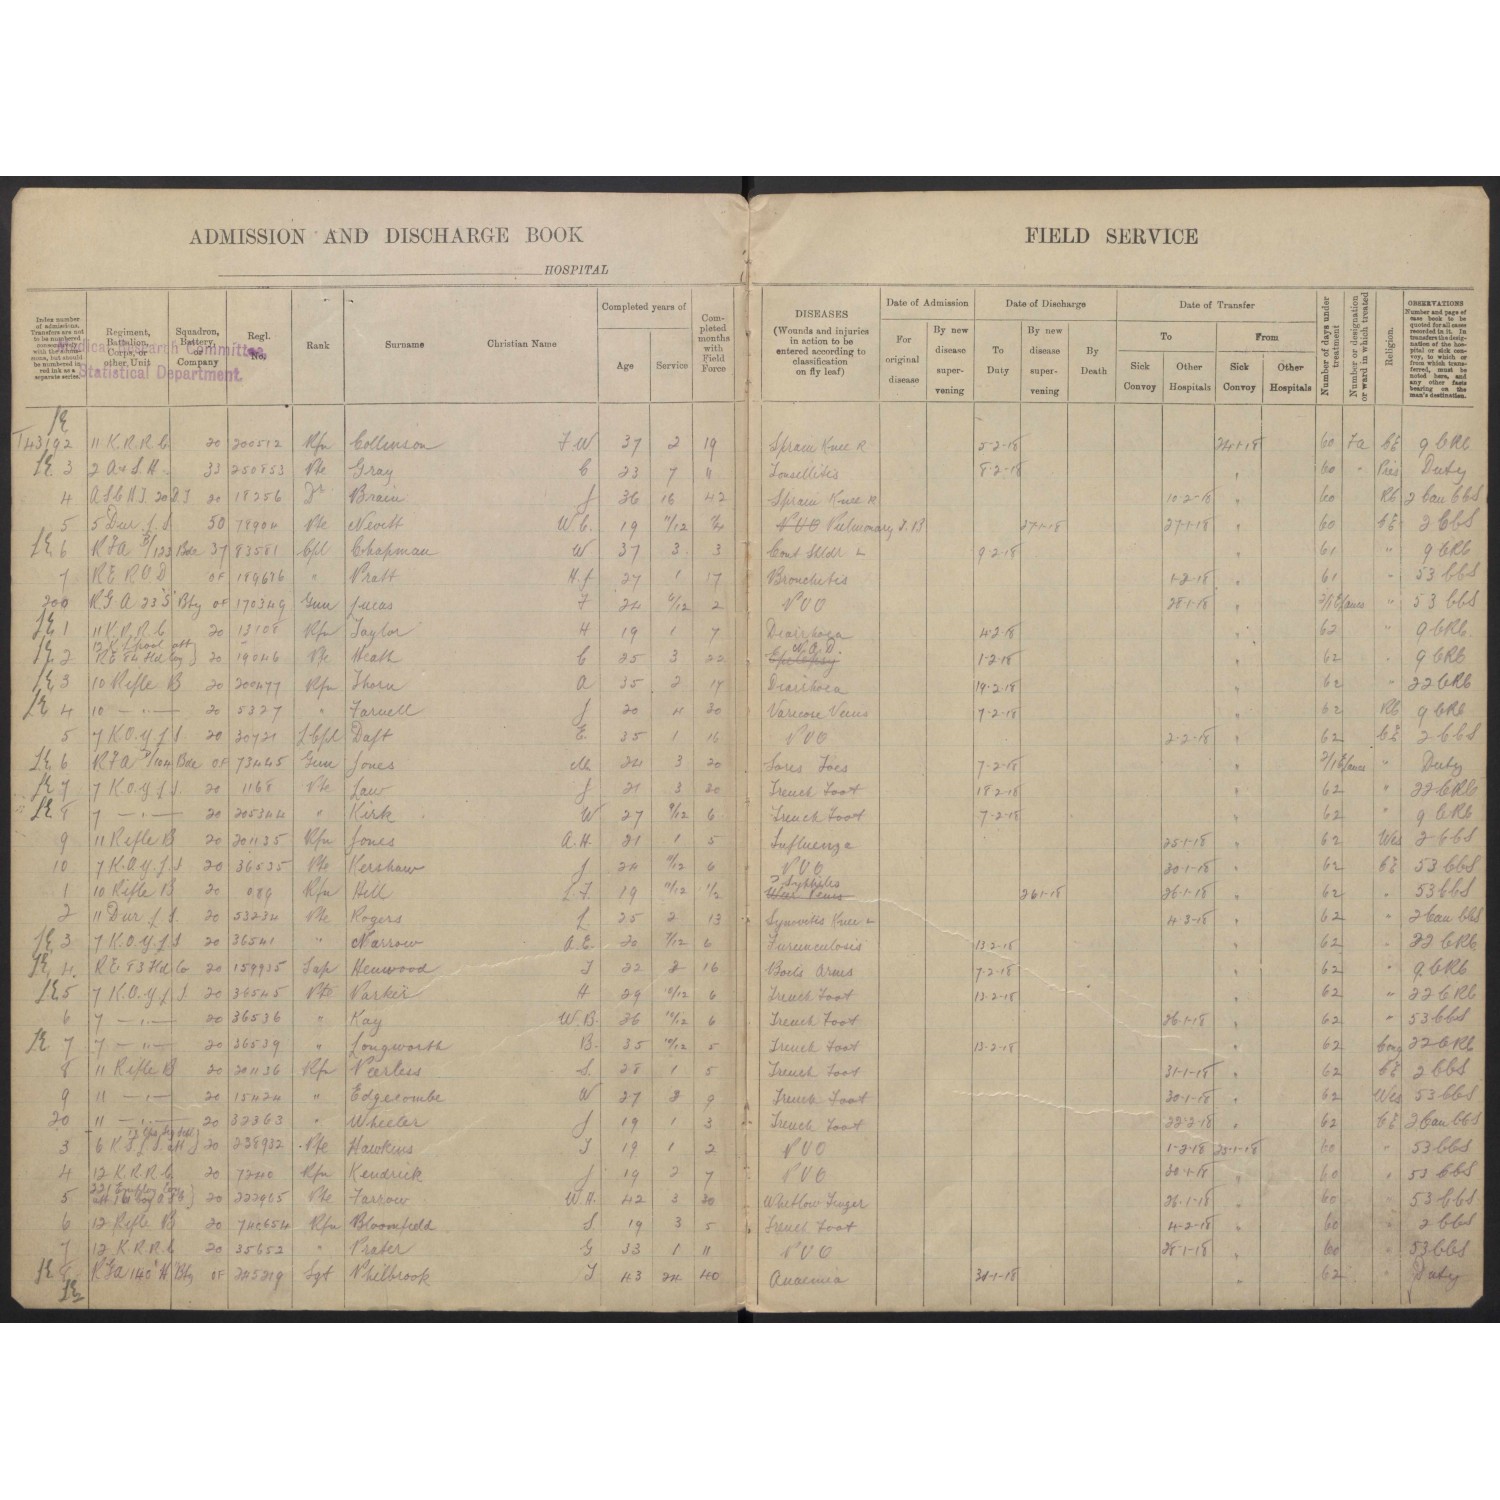 ADMISSION AND DISCHARGE BOOK
HOSPITAL
FIELD SERVICE
Index number of admissions. Transfers are not to be numbered consecutively with the admissions, but should be numbered in red ink as a separate series.
Regiment, Battalion, Corps, or other Unit
Squadron, Battery, or Company
Regl. No.
Rank
Surname
Christian Name
Completed years of
Age
Service
Completed months with Field Force
DISEASES (Wounds and injuries in action to be entered according to classification on fly leaf)
Date of Admission
For original disease
By new disease supervening
Date of Discharge
To Duty
By new disease supervening
By Death
Date of Transfer
To
Sick Convoy
Other Hospitals
From
Sick Convoy
Other Hospitals
Number of days under treatment
Number or designation or ward in which treated
Religion.
OBSERVATIONS Number and page of case book to be quoted for all cases recorded in it. In transfers the designation of the hospital or sick convoy, to which or from which transferred, must be noted here, and any other facts bearing on the man's destination.
Medical Research Committee,
Statistical Department.
T43192 11 K.R.R.C 20 200512 Rfn Collinson F.W 37 2 19 Sprain Knee R 5-2-18 24-1-18 60 CE 9 CRC
3 2 A & S.H. 33 250853 Pte Gray C 23 7 11 Tonsillitis 8-2-18 " 60 " Pres Duty
4 20 18256 Dr Brain J 36 16 42 Sprain Knee R 10-2-18 " 60 RC 2 Can CCS
5 5 Dur. L.I. 50 78904 Pte Nevett W.C. 19 11/12 PUO Pulmonary T.B 27-1-18 27-1-18 " 60 CE 2 CCS
6 RFA Bde 37 83581 Cpl Chapman W 37 3 3 Cont Shldr L 9-2-18 " 61 " 9 CRC
7 RE ROD OF 189676 " Pratt H.J 27 1 17 Bronchitis 1-2-18 " 61 " 53 CCS
200 RGA 23 S Bty OF 170349 Gnr Lucas F 24 6/12 2 PUO 28-1-18 " " 53 CCS
1 11 K.R.R.C 20 13108 Rfn Taylor H 19 1 7 Diarrhoea 4-2-18 " 62 " 9 CRC
2 RE 84 Fld Coy 20 19046 Pte Heath C 25 3 22 Epilepsy N.A.D. 1-2-18 " 62 " 9 CRC
3 10 Rifle B 20 200477 Rfn Thorn A 35 2 17 Diarrhoea 14-2-18 " 62 " 22 CRC
4 10 — " — 20 5327 " Farnell J 20 4 30 Varicose Veins 7-2-18 " 62 RC 9 CRC
5 7 K.O.Y.L.I. 20 30721 LCpl Daft E. 35 1 16 PUO 2-2-18 " 62 CE 2 CCS
6 RFA Bde OF 73445 Gnr Jones M 24 3 20 Sores Toes 7-2-18 " " Duty
7 7 K.O.Y.L.I. 20 1168 Pte Law J 21 3 20 Trench Foot 18-2-18 " 62 " 22 CRC
8 7 — " — 20 205344 " Kirk W 27 9/12 6 Trench Foot 7-2-18 " 62 " 9 CRC
9 11 Rifle B 20 201135 Rfn Jones A.H. 21 1 5 Influenza 25-1-18 " 62 Wes 2 CCS
10 7 K.O.Y.L.I. 20 36535 Pte Kershaw J 24 6 PUO 30-1-18 " 62 CE 53 CCS
1 10 Rifle B 20 089 Rfn Hell L.F. 19 11/12 1/2 ? Syphilis 26-1-18 26-1-18 " 62 " 53 CCS
2 11 Dur. L.I. 20 53234 Pte Rogers L 25 2 13 Synovitis Knee L 4-3-18 " 62 " 2 Can CCS
3 7 K.O.Y.L.I 20 36541 " Narrow A.E. 20 7/12 6 Furunculosis 13-2-18 " 62 " 22 CRC
4 RE 83 Fld Co 20 159935 Sap Henwood T 22 2 16 Boils Arms 7-2-18 " 62 " 9 CRC
5 7 K.O.Y.L.I. 20 36545 Pte Parker H 29 10/12 6 Trench Foot 13-2-18 " 62 " 22 CRC
6 7 — " — 20 36536 " Kay W.B. 26 10/12 6 Trench Foot 26-1-18 " 62 " 53 CCS
7 7 — " — 20 36539 " Longworth B. 35 10/12 5 Trench Foot 13-2-18 " 62 Cong 22 CRC
8 11 Rifle B 20 201136 Rfn Peerless S. 28 1 5 Trench Foot 31-1-18 " 62 CE 2 CCS
9 11 — " — 20 15424 " Edgecombe W 27 2 9 Trench Foot 30-1-18 " 62 Wes 53 CCS
20 11 — " — 20 32363 " Wheeler J 19 1 3 Trench Foot 22-2-18 " 62 CE 2 Can CCS
3 6 K.S.L.I. att 20 238932 Pte Hawkins T 19 1 2 PUO 1-2-18 25-1-18 60 " 53 CCS
4 12 K.R.R.C 20 7240 Rfn Kendrick J 19 2 7 PUO 30-1-18 " 60 " 53 CCS
5 20 222965 Pte Farrow W.H. 42 3 20 Whitlow Finger 26-1-18 " 60 " 53 CCS
6 12 Rifle B 20 740654 Rfn Bloomfield S 19 3 5 Trench Foot 4-2-18 " 60 " 2 CCS
7 12 K.R.R.C 20 35652 " Prater G 33 1 11 PUO 28-1-18 " 60 " 53 CCS
8 RFA 140 H Bty OF 245219 Sgt Philbrook T 43 24 40 Anaemia 31-1-18 " 62 " Duty